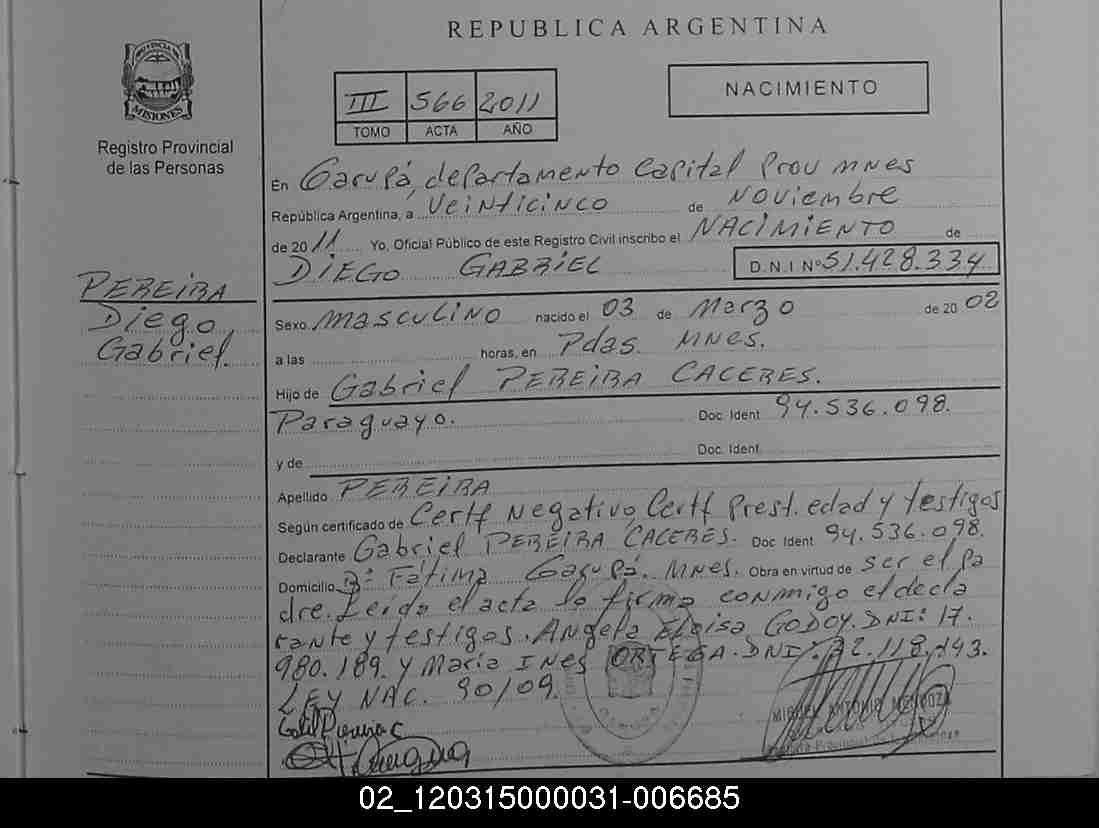 REPUBLICA ARGENTINA
PROVINCIA
MISIONES
Registro Provincial
de las Personas
III 566 2011
TOMO ACTA AÑO
NACIMIENTO
En Garupá, departamento Capital Prov MNES
República Argentina, a Veinticinco de Noviembre
de 2011 Yo, Oficial Público de este Registro Civil inscribo el NACIMIENTO de
DIEGO GABRIEL D.N.I Nº 51.428.334
PEREIRA
Diego
Gabriel.
Sexo Masculino nacido el 03 de Marzo de 20 02
a las horas, en Pdas. MNES.
Hijo de Gabriel PEREIRA CACERES.
Paraguayo. Doc. Ident 94.536.098.
y de Doc. Ident.
Apellido PEREIRA
Según certificado de Certf Negativo, Certf Prest. edad y testigos
Declarante Gabriel PEREIRA CACERES. Doc Ident 94.536.098.
Domicilio Bº Fátima Garupá. MNES. Obra en virtud de ser el pa
dre. Leída el acta la firma conmigo el decla
rante y testigos. Angela Eloisa GODOY. DNI: 17.
980.189. y María Ines ORTEGA. DNI: 22.118.143.
LEY NAC. 90/09.
MIGUEL ANTONIO MENDOZA
02_120315000031-006685